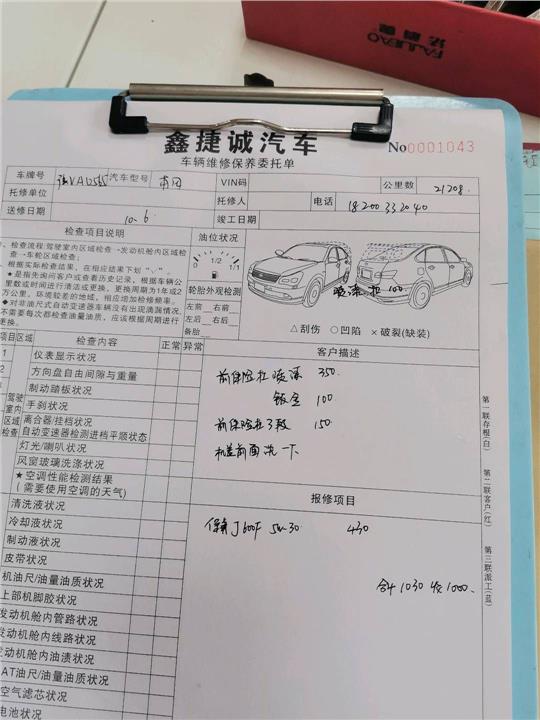 达派宝
FAJUEBAO
鑫捷诚汽车
车辆维修保养委托单
No0001043
车牌号 VA0565 汽车型号 VIN码 公里数 21208.
托修单位 托修人 电话 18200332040
送修日期 10-6 竣工日期
检查项目说明 油位状况
检查流程:驾驶室内区域检查→发动机舱内区域检查→车轮区域检查;
根据实际检查结果,在相应结果下划“√”。
★是指先询问客户或查看历史记录,根据车辆公里数或时间进行清洁或更换,更换周期为1年或2万公里,环境较差的地域,相应增加检修频率。
★对非油尺式自动变速器车辆没有出现滴漏情况,不需要每次都检查油量油质,应该根据周期进行更换。
0 1/2 1/1
轮胎外观检测
左前 右前
左后 右后
备胎
喷漆 100
△刮伤 ○凹陷 ×破裂(缺装)
项目区域 检查内容 正常 异常
客户描述
驾驶室内区域检查
1 仪表显示状况
2 方向盘自由间隙与重量
制动踏板状况
手刹状况
离合器/挂档状况
自动变速器检测进档平顺状态
灯光/喇叭状况
风窗玻璃洗涤状况
★空调性能检测结果
(需要使用空调的天气)
清洗液状况
冷却液状况
制动液状况
皮带状况
机油尺/油量油质状况
上部机脚胶状况
发动机舱内管路状况
发动机舱内线路状况
发动机舱内油渍状况
AT油尺/油量油质状况
空气滤芯状况
电池状况
前保险杠喷漆 350
钣金 100
前保险杠 150
机盖前面洗一下
报修项目
保养 J600F 5W-30 430
合计1030 收1000.
第一联存根(白) 第二联客户(红) 第三联派工(蓝)